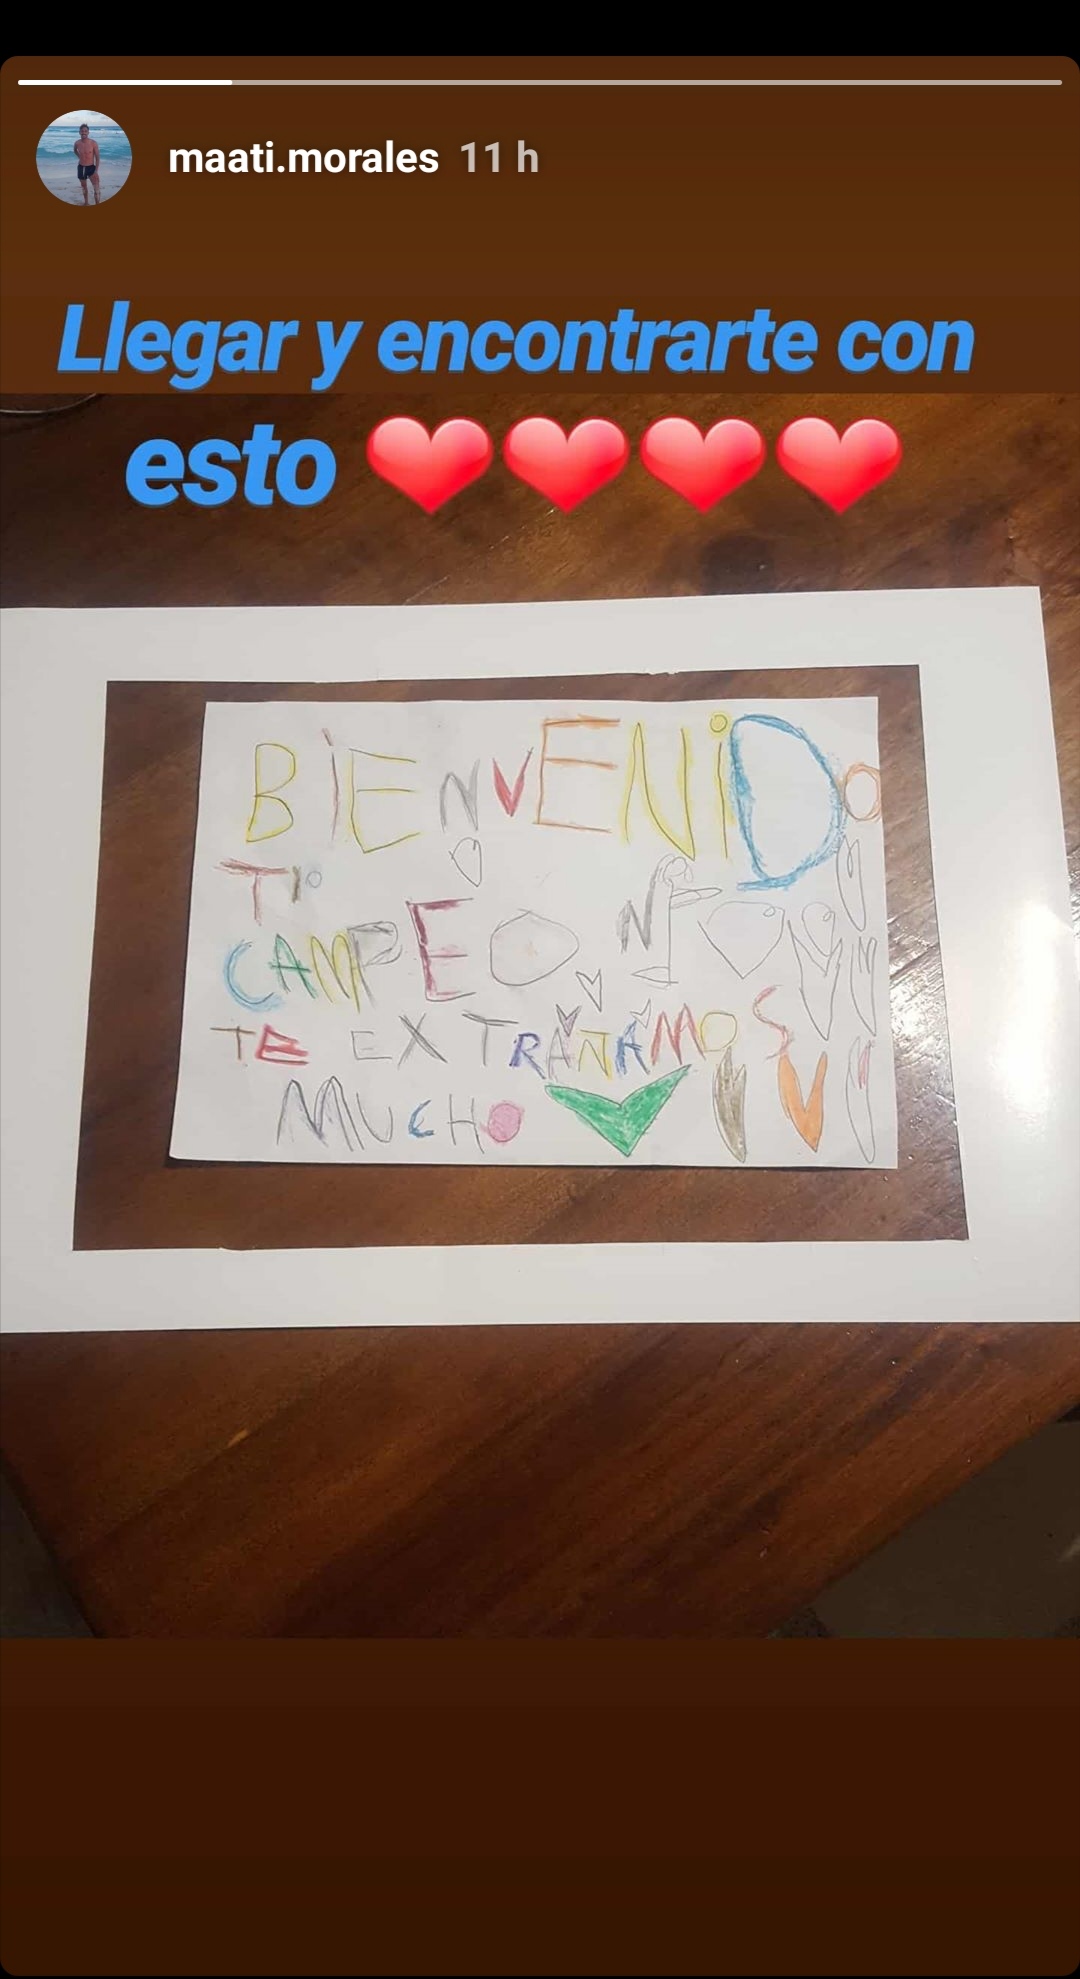 maati.morales 11 h
Llegar y encontrarte con
esto ❤❤❤❤
BiENVENiDo
Tio
CAMPEON
TE EXTRAÑAMOS
MUCHO